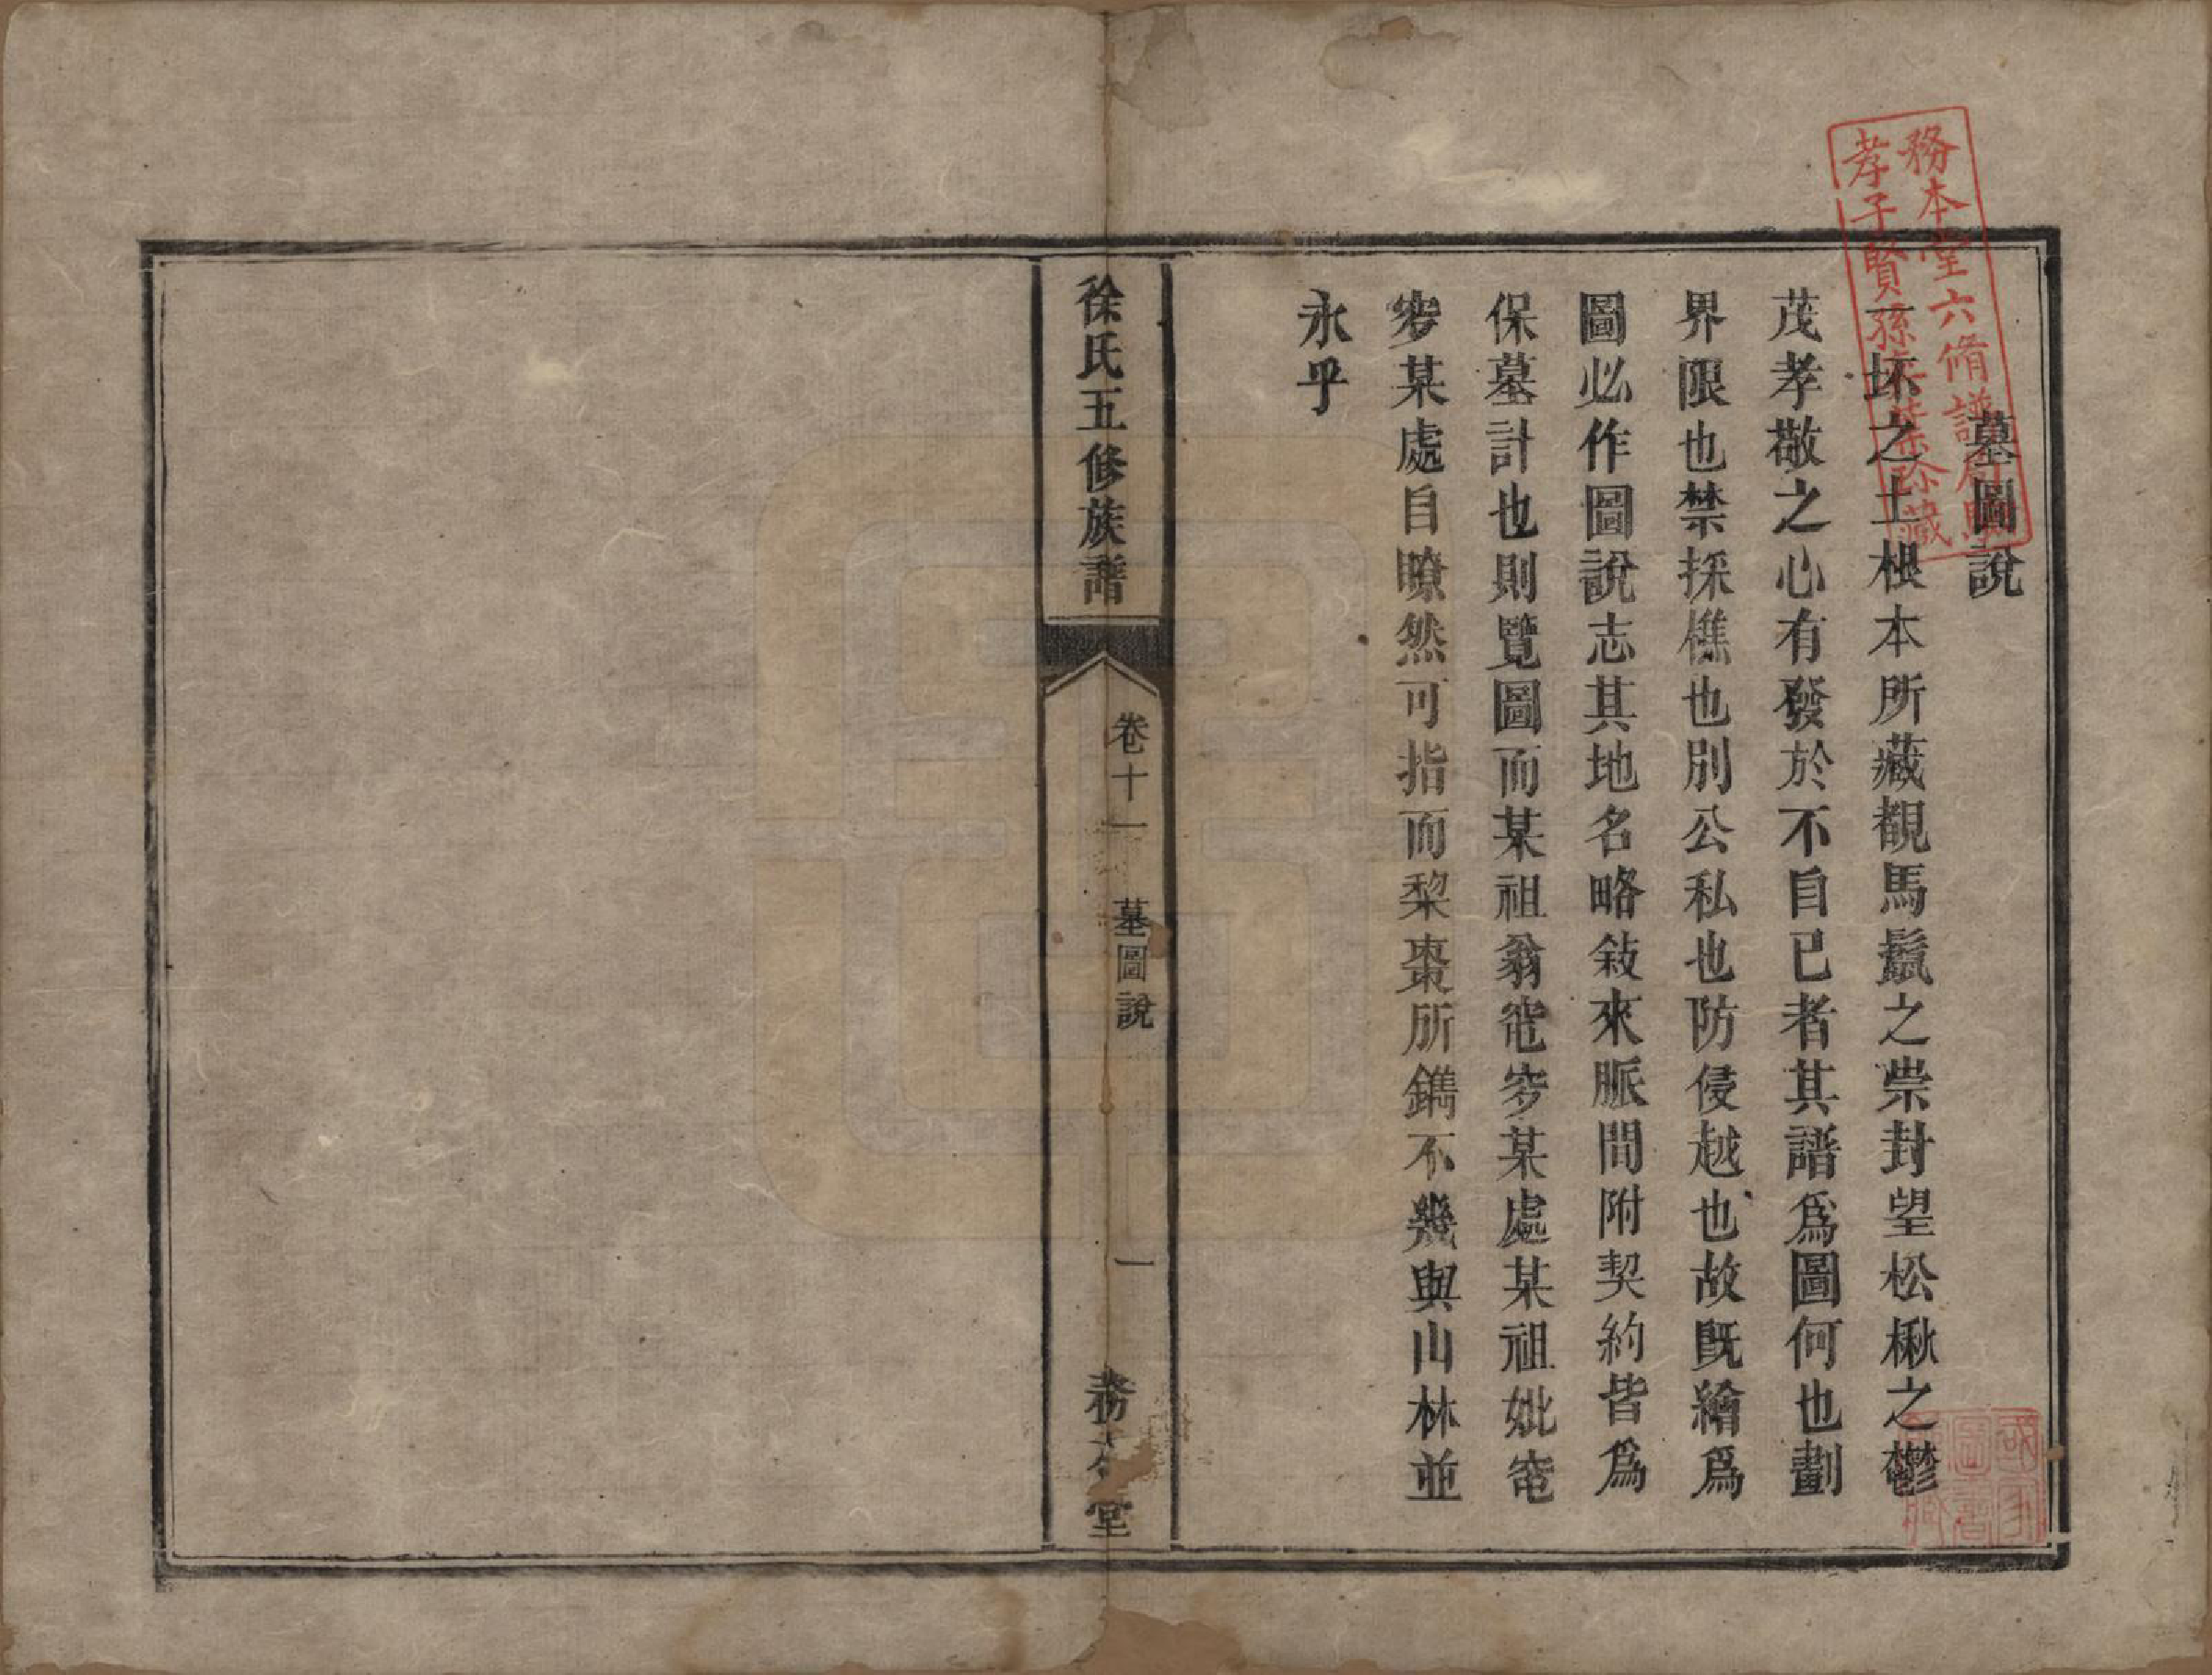 墓圖說
一抔之土根本所藏覩馬鬛之崇封望松楸之鬱
茂孝敬之心有發於不自已者其譜爲圖何也劃
界限也禁採樵也別公私也防侵越也故既繪爲
圖必作圖說志其地名略敍來脈間附契約皆爲
保墓計也則覽圖而某祖翁窀穸某處某祖妣窀
穸某處自瞭然可指而棃棗所鐫不幾與山林並
永乎
徐氏五修族譜
卷十一
墓圖說
一
務本堂
務本堂六脩譜
孝子賢孫珍藏
國家圖書館藏